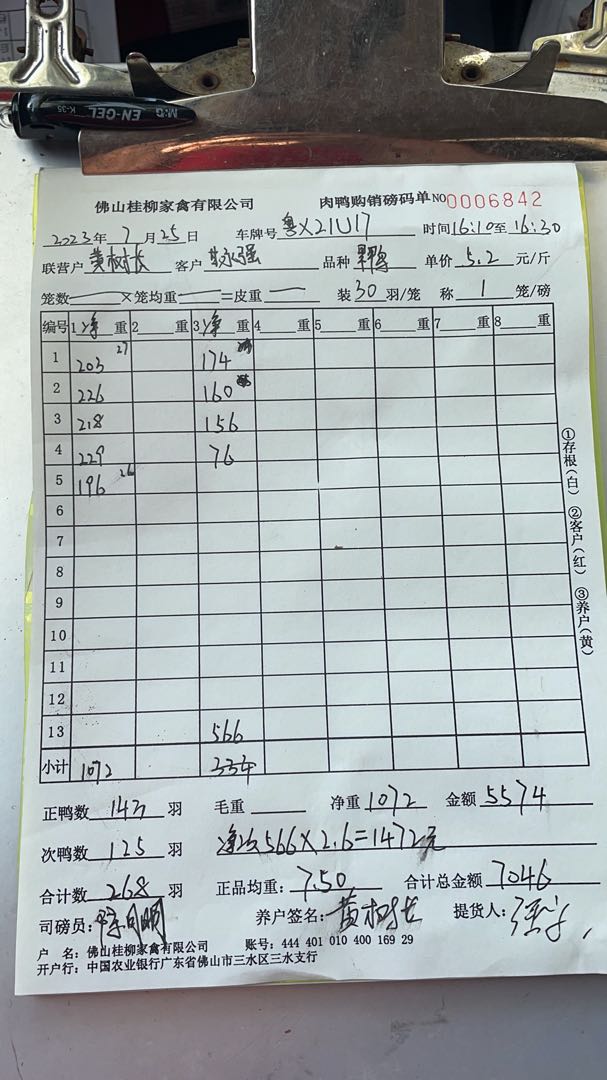 M&G
EN-GEL
K-35
佛山桂柳家禽有限公司 肉鸭购销磅码单 NO 0006842
2023年7月25日 车牌号 粤X21U17 时间16:10至16:30
联营户 黄树长 客户 强 品种 鸭 单价 5.2 元/斤
笼数 — ×笼均重 — =皮重 — 装 30 羽/笼 称 1 笼/磅
编号 1 净 重 2 重 3 净 重 4 重 5 重 6 重 7 重 8 重
1 203 27 174
2 226 160
3 218 156
4 229 76
5 196 26
6
7
8
9
10
11
12
13 566
小计 1072 334
①存根(白) ②客户(红) ③养户(黄)
正鸭数 143 羽 毛重 净重 1072 金额 5574
次鸭数 125 羽 净次566×2.6=1472元
合计数 268 羽 正品均重: 7.50 合计总金额 7046
司磅员: 明 养户签名: 黄树长 提货人:
户 名: 佛山桂柳家禽有限公司 账号: 444 401 010 400 169 29
开户行: 中国农业银行广东省佛山市三水区三水支行